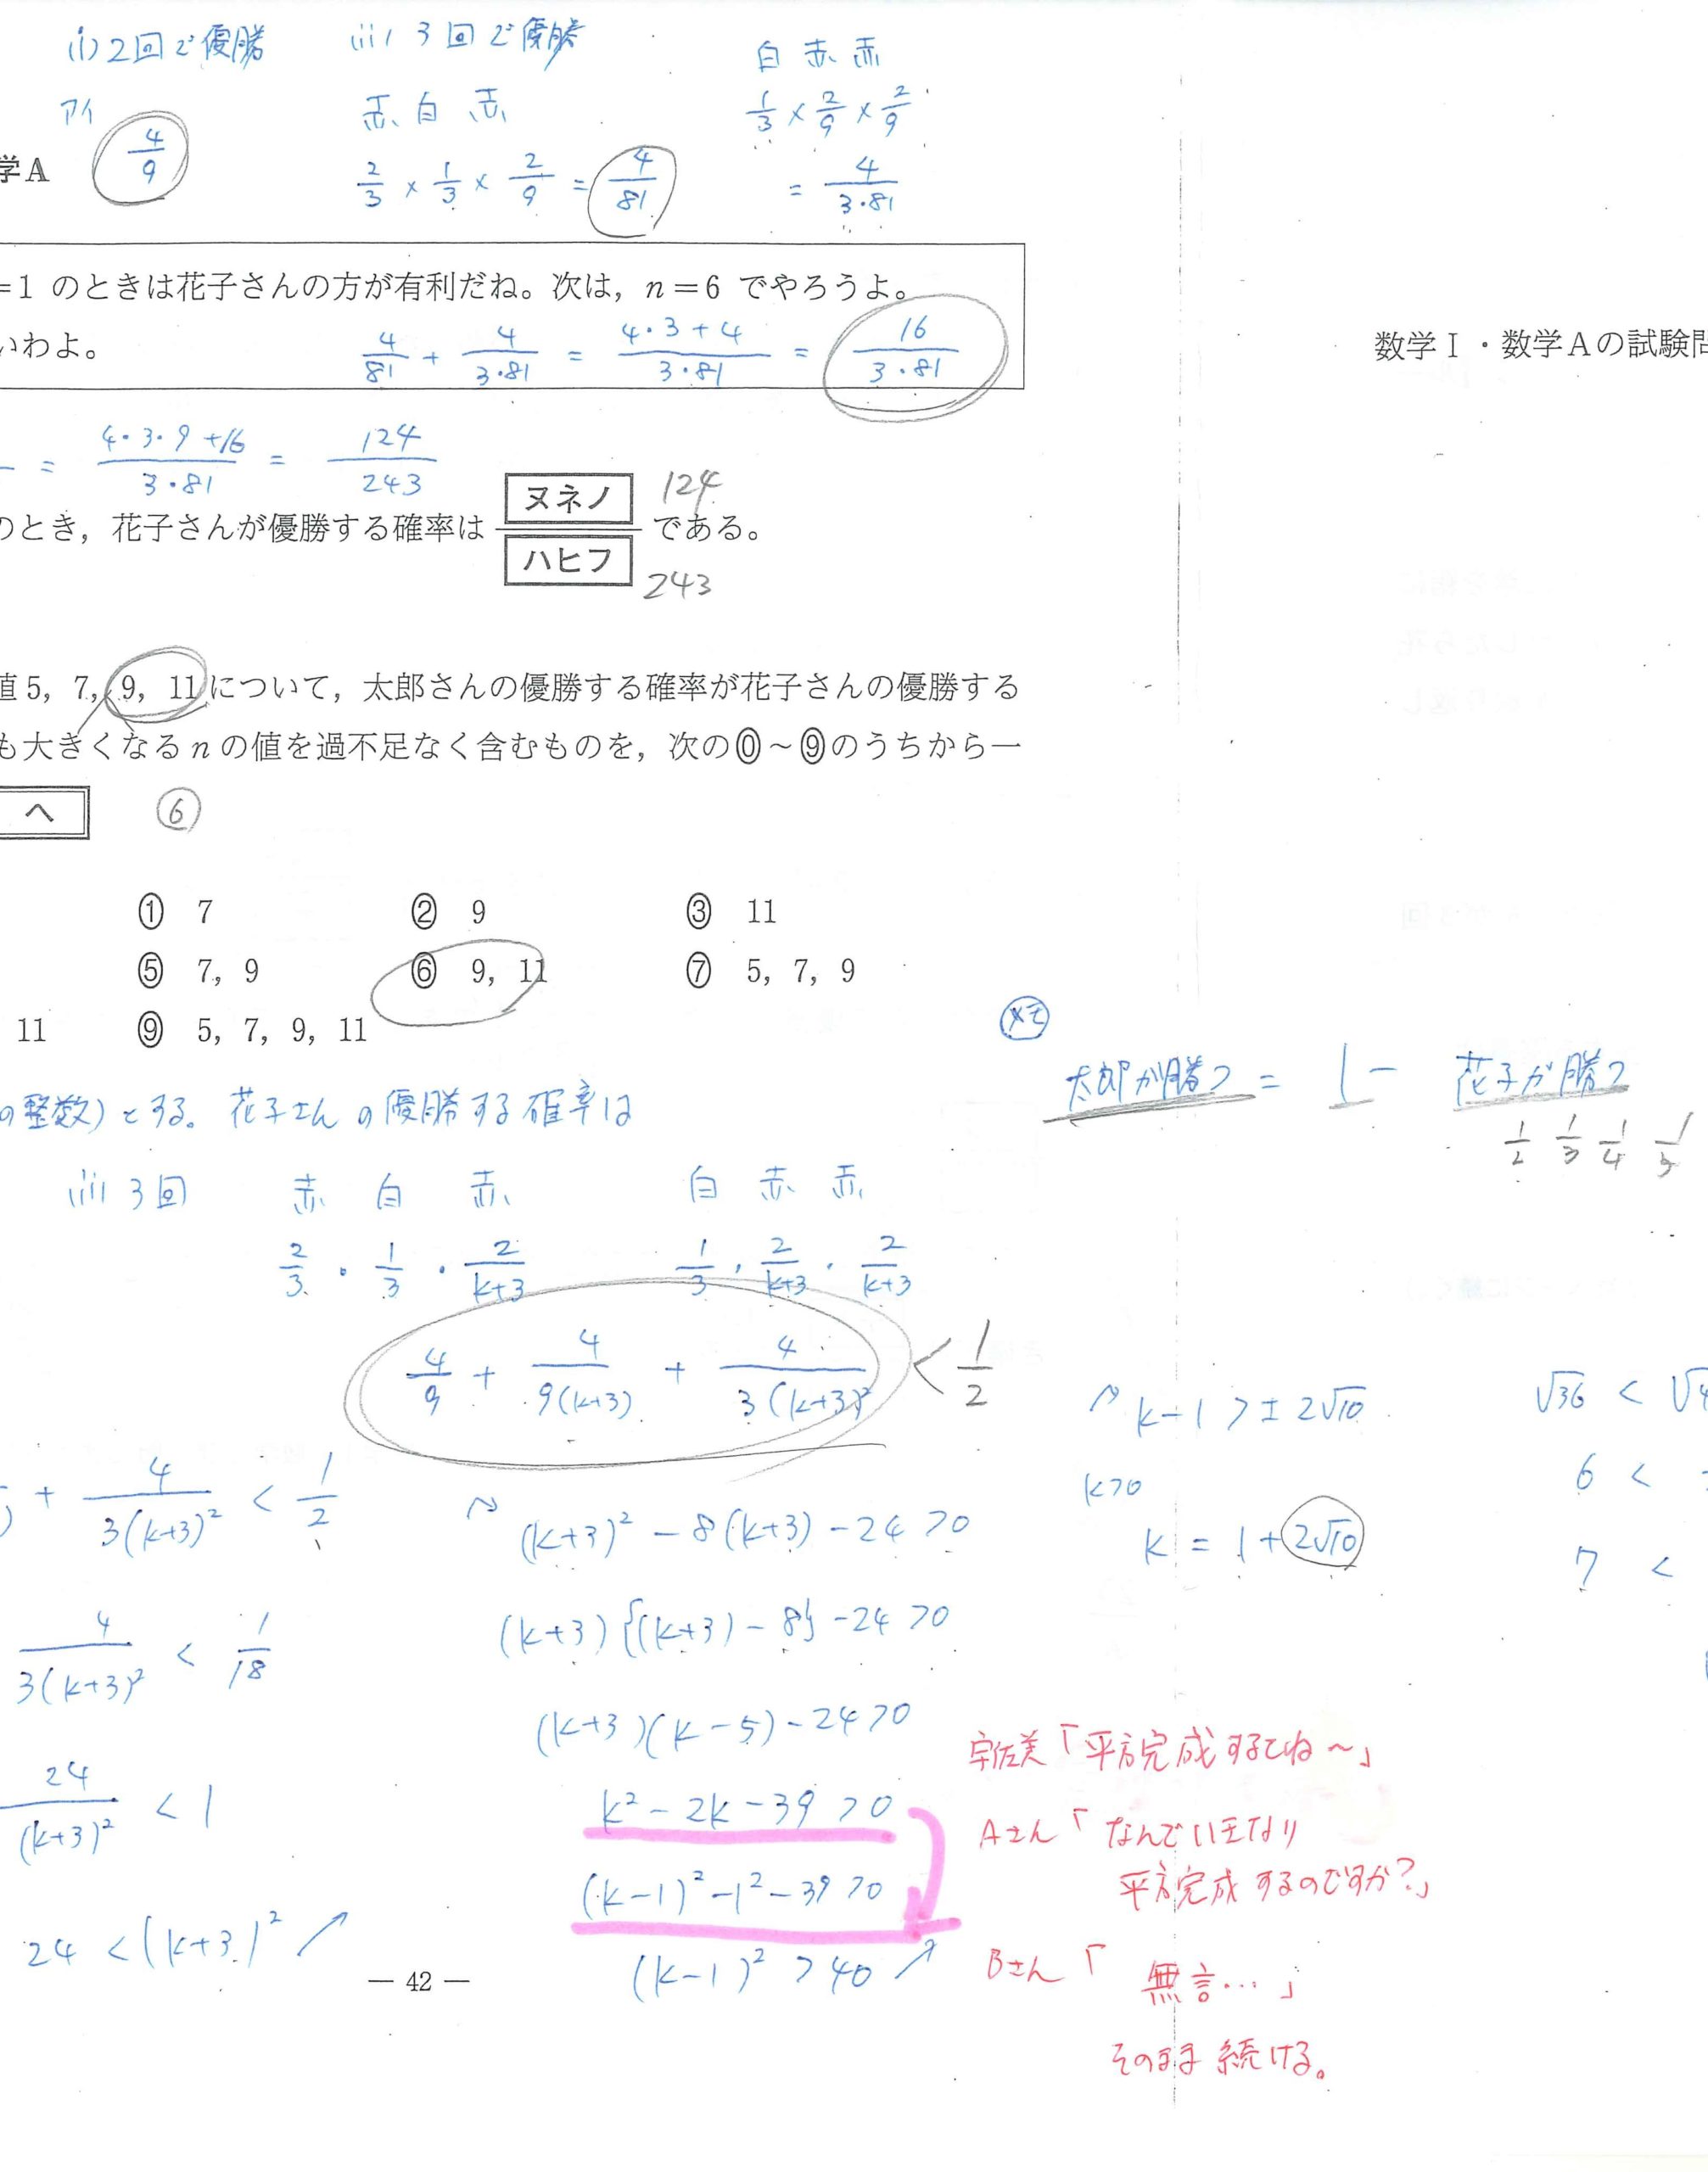 (i) 2回で優勝
(ii) 3回で優勝
白 赤 赤
アイ
赤 白 赤
1/3 × 2/9 × 2/9
4/9
学A
2/3 × 1/3 × 2/9 = 4/81
= 4/3・81
=1 のときは花子さんの方が有利だね。次は, n=6 でやろうよ。
いわよ。
4/81 + 4/3・81 = 4・3+4/3・81 = 16/3・81
数学Ⅰ・数学Aの試験問
= 4・3・9+16/3・81 = 124/243
のとき, 花子さんが優勝する確率は ヌネノ/ハヒフ である。
124
243
値5, 7, 9, 11について, 太郎さんの優勝する確率が花子さんの優勝する
も大きくなるnの値を過不足なく含むものを, 次の⓪~⑨のうちから一
ヘ ⑥
① 7 ② 9 ③ 11
⑤ 7, 9 ⑥ 9, 11 ⑦ 5, 7, 9
11 ⑨ 5, 7, 9, 11
メモ
太郎が勝つ = 1 − 花子が勝つ
1/2 1/3 1/4
の整数)とする。花子さんの優勝する確率は
(ii) 3回 赤 白 赤 白 赤 赤
2/3・1/3・2/k+3 1/3・2/k+3・2/k+3
4/9 + 4/9(k+3) + 4/3(k+3)² < 1/2
+ 4/3(k+3)² < 1/2
4/3(k+3)² < 1/18
24/(k+3)² < 1
24 < (k+3)² ↗
(k+3)² − 8(k+3) − 24 > 0
(k+3){(k+3) − 8} − 24 > 0
(k+3)(k−5) − 24 > 0
k² − 2k − 39 > 0
(k−1)² − 1² − 39 > 0
(k−1)² > 40 ↗
k−1 > ± 2√10
k>0
k = 1 + 2√10
√36 <
6 <
7 <
宇佐美「平方完成するでね~」
Aさん「なんでいきなり
平方完成するのですか?」
Bさん「無言…」
そのまま続ける。
— 42 —